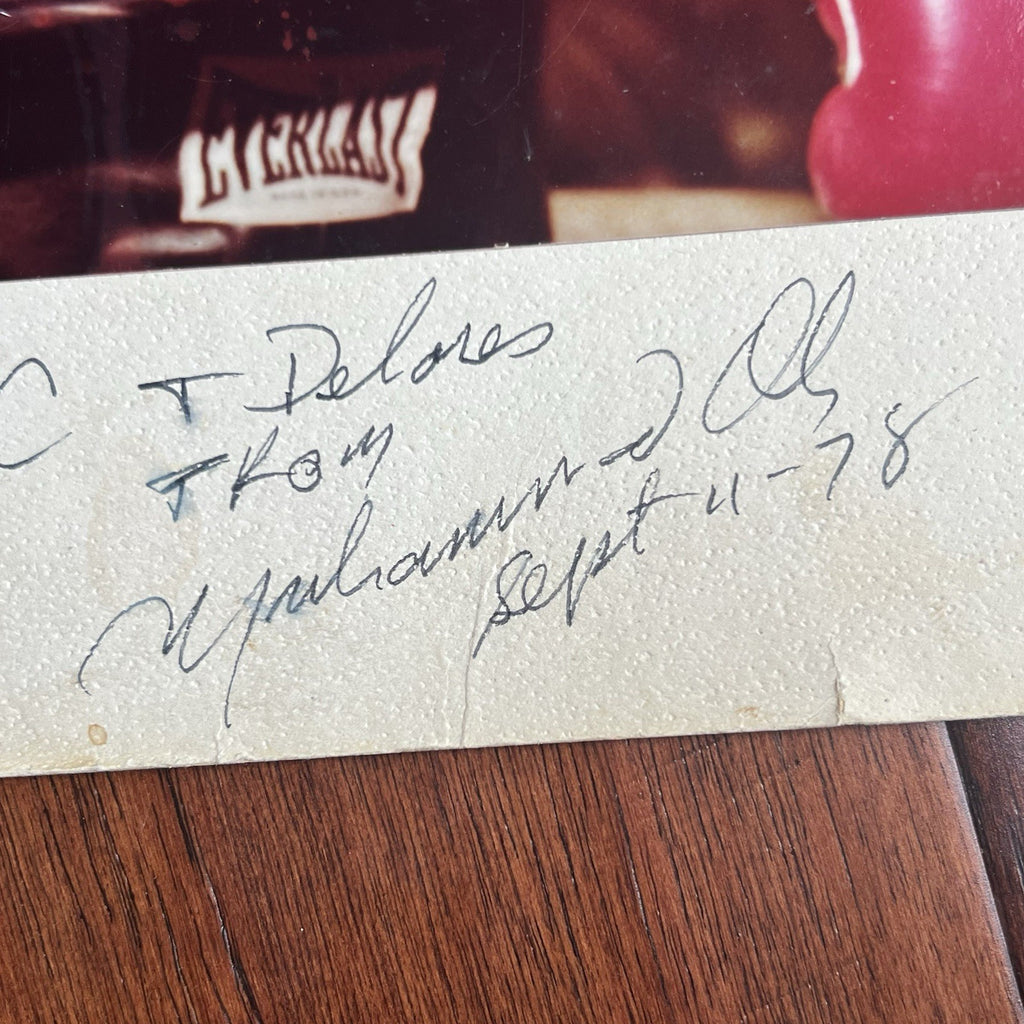 EVERLAST
T Delores
From
Muhammad Ali
Sept 11-78